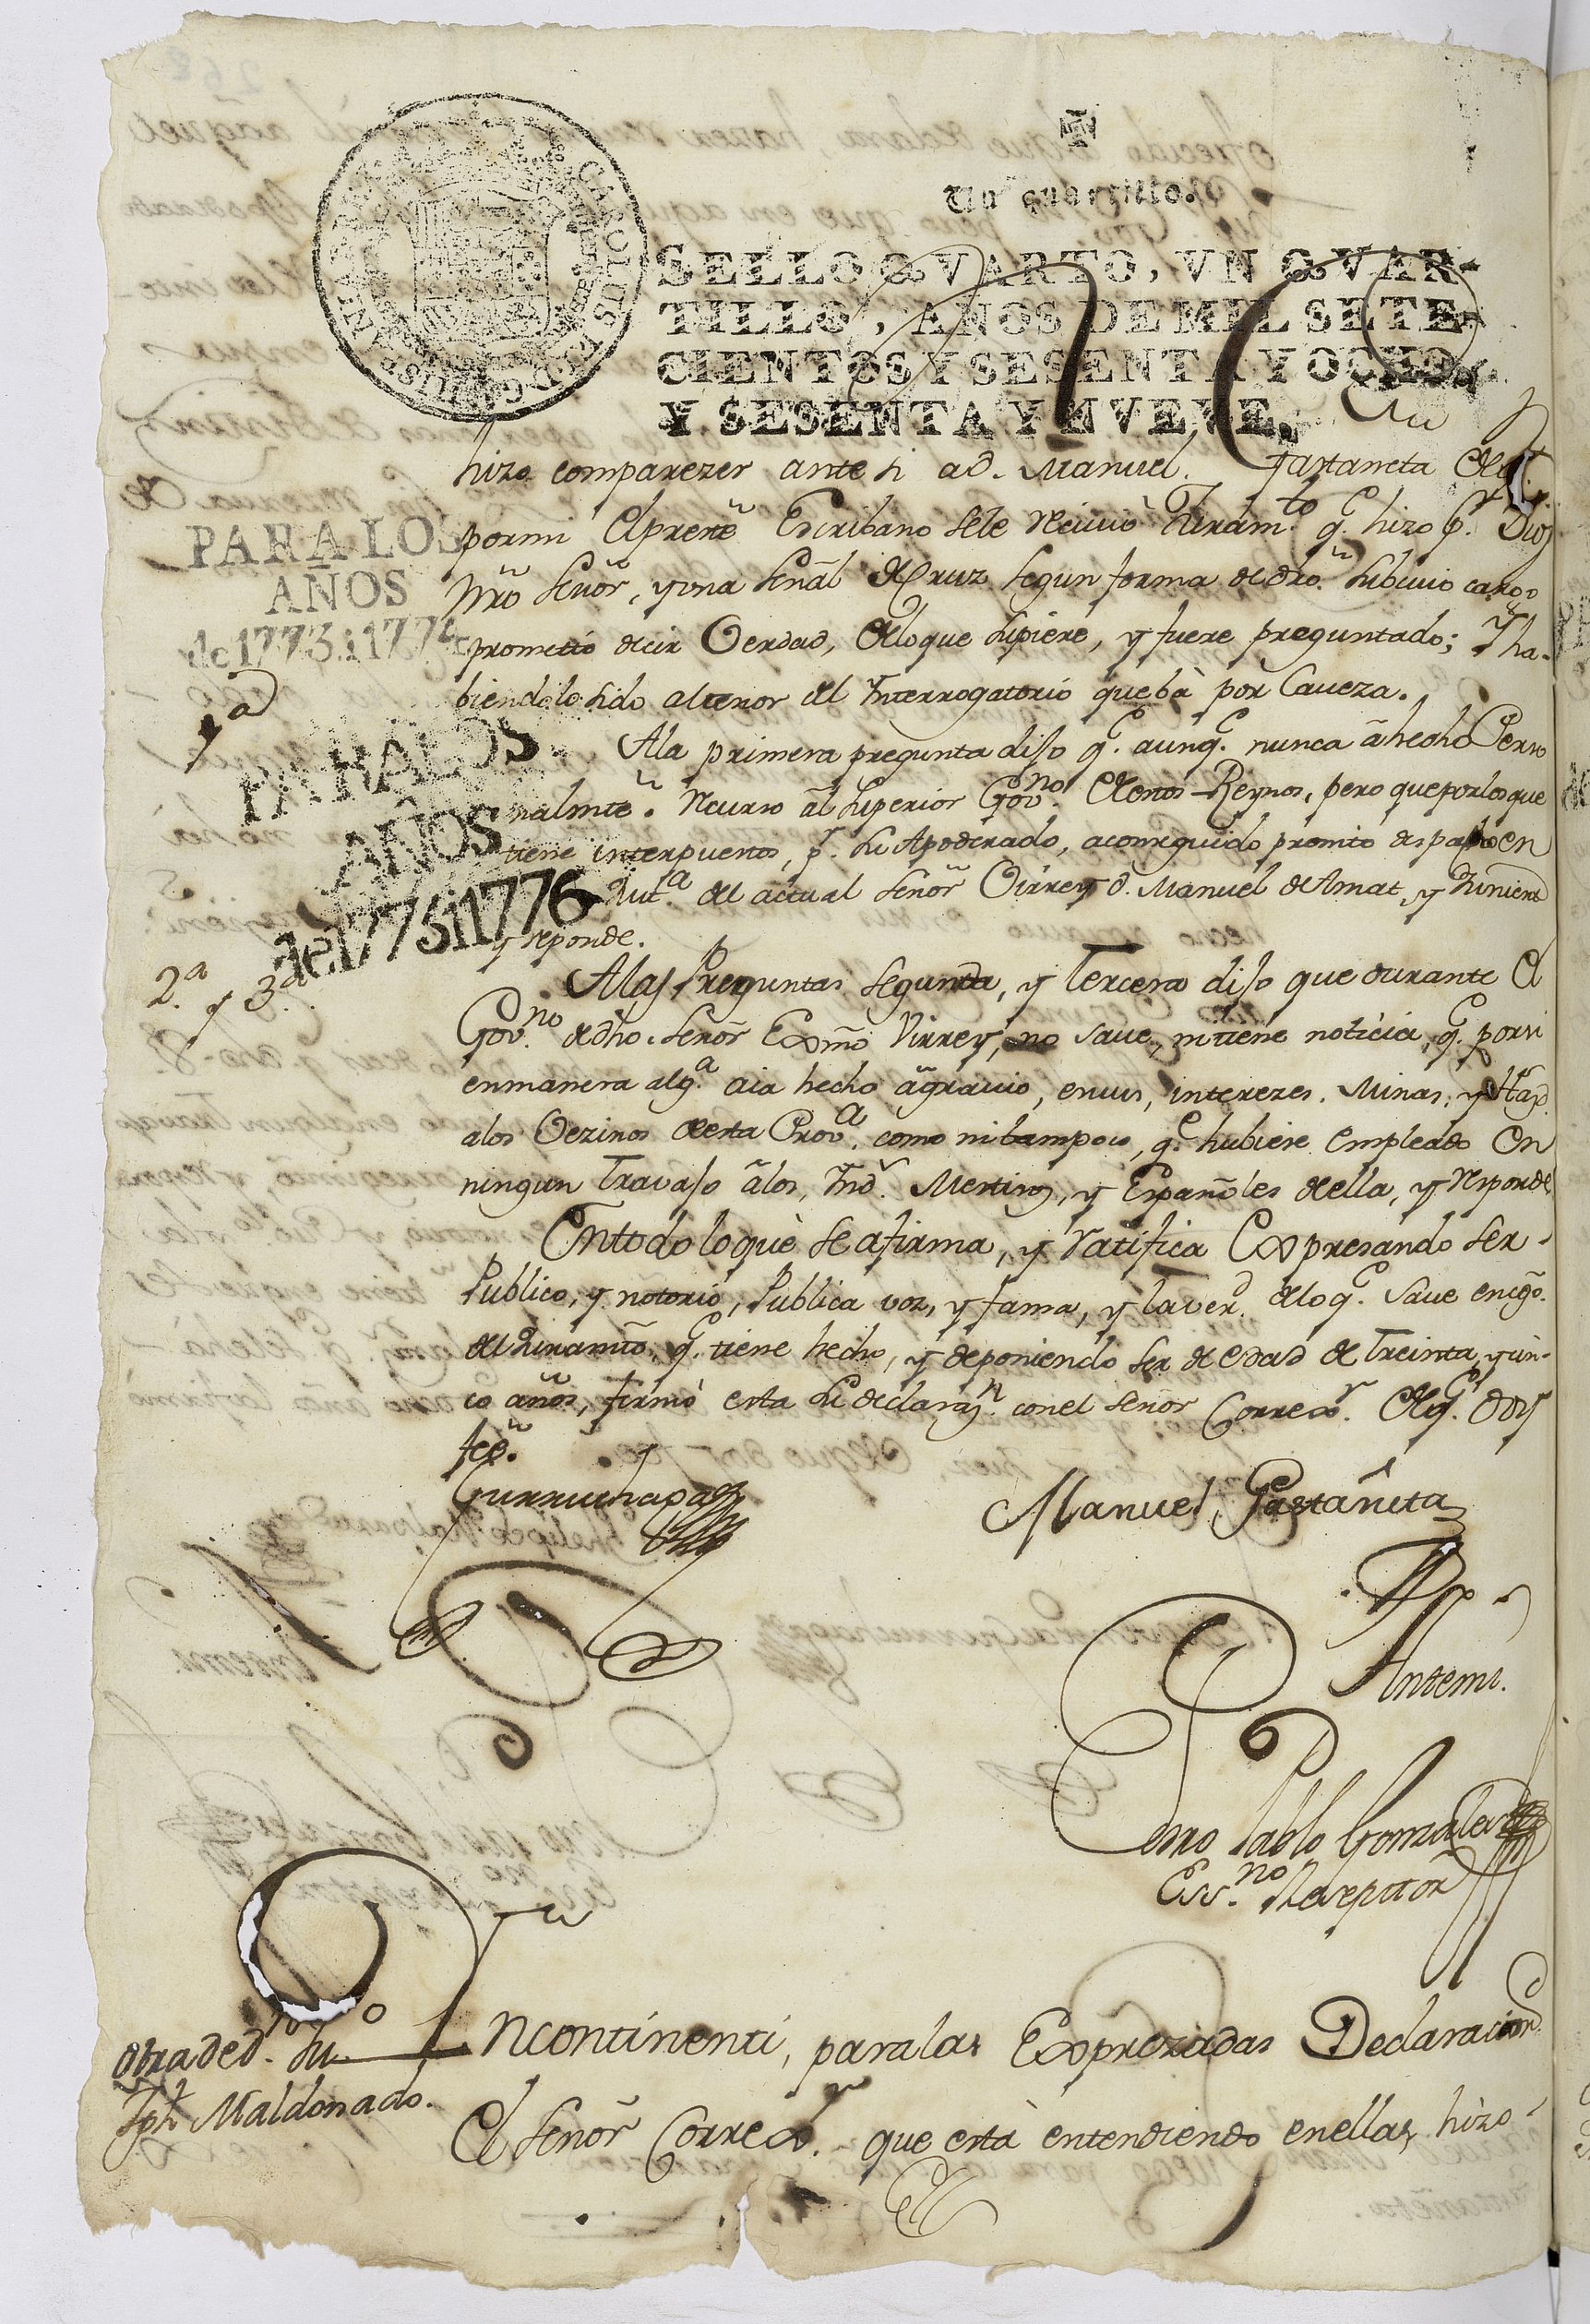 Un quartillo.
SELLO QVARTO, VN QVAR-
TILLO, AÑOS DE MIL SETE-
CIENTOS Y SESENTA Y OCHO,
Y SESENTA Y NVEVE.
hizo comparezer ante si a D. Manuel Gastañeta del qᵉ
PARA LOS
AÑOS
de 1773 i 1774
por mi el preste Escribano sele reciuio Juramᵗᵒ qᵉ hizo pʳ Dios
Nrõ Señor, y vna señal de Cruz segun forma de dro. su cuio cargo
prometió decir Verdad, delo que supiere, y fuere preguntado; Y ha-
biendolo sido al tenor del Interrogatorio que bà por Caveza.
1ª
PARA LOS
AÑOS
de 1775 i 1776
Ala primera pregunta dijo qᵉ aunqᵉ nunca ã hecho Perso
nalmte. Recurso ãl Superior Govⁿᵒ. destos Reynos, pero que por los que
tiene interpuestos, pʳ su Apoderado, a conseguido pronto despacho en
Justª del actual Señor Virrey D. Manuel de Amat, y Juniend
y reponde.
2.ª y 3ª.
Alas Preguntas segunda, y Tercera dijo que durante el
Govⁿᵒ. de dho. Señor Exmõ Virrey, no save, ni tiene noticia, qᵉ por si
en manera algª aia hecho ãgrauio, en sus, interezes, Minas, y Hazᵈ
alos Vezinos desta Provª. como ni tampoco, qᵉ hubiese empleado en
ningun Travajo ãlos, Indˢ. Mestisos, y Españoles della, y responde
En todo lo què se afirma, y ratifica Expresando ser
Publico, y notorio, Publica voz, y fama, y la verᵈ. delo qᵉ. save en cgõ.
del Juramto. qᵉ. tiene hecho, y deponiendo ser de edad de Treinta y cin-
co años, firmó esta su declaraⁿ. con el Señor Corregʳ. del qᵉ. doy
fee.
Gurruchaga
Manuel Gastañeta
Antemi.
Pedro Pablo Gonzales
Essⁿᵒ. Reseptor
Otra de Dⁿ. Juº
Jph Maldonado.
Yncontinenti, para las Exprezadas Declaracionˢ.
El Señor Corregʳ. que està entendiendo en ellas, hizo